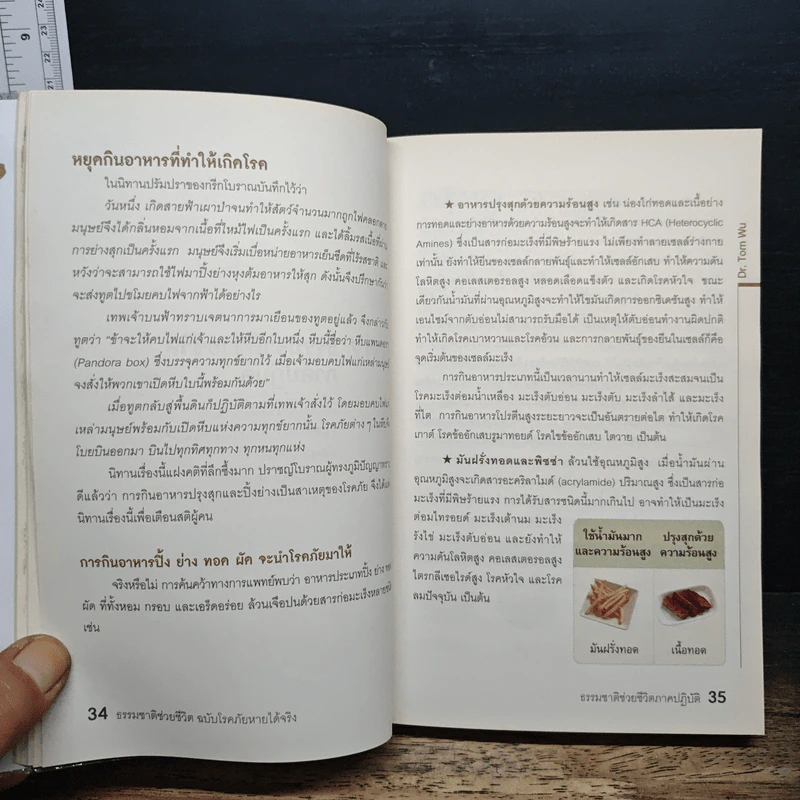 หยุดกินอาหารที่ทำให้เกิดโรค
ในนิทานปรัมปราของกรีกโบราณบันทึกไว้ว่า
วันหนึ่ง เกิดสายฟ้าเผาป่าจนทำให้สัตว์จำนวนมากถูกไฟคลอกตาย
มนุษย์จึงได้กลิ่นหอมจากเนื้อที่ไหม้ไฟเป็นครั้งแรก และได้ลิ้มรสเนื้อที่ผ่าน
การย่างสุกเป็นครั้งแรก มนุษย์จึงเริ่มเบื่อหน่ายอาหารเย็นชืดที่ไร้รสชาติ และ
หวังว่าจะสามารถใช้ไฟมาปิ้งย่างหุงต้มอาหารให้สุก ดังนั้นจึงปรึกษากันว่า
จะส่งทูตไปขโมยคบไฟจากฟ้าได้อย่างไร
เทพเจ้าบนฟ้าทราบเจตนาการมาเยือนของทูตอยู่แล้ว จึงกล่าวกับ
ทูตว่า “ข้าจะให้คบไฟแก่เจ้าและให้หีบอีกใบหนึ่ง หีบนี้ชื่อว่า หีบแพนดอรา
(Pandora box) ซึ่งบรรจุความทุกข์ยากไว้ เมื่อเจ้ามอบคบไฟแก่เหล่ามนุษย์
จงสั่งให้พวกเขาเปิดหีบใบนี้พร้อมกันด้วย”
เมื่อทูตกลับสู่พื้นดินก็ปฏิบัติตามที่เทพเจ้าสั่งไว้ โดยมอบคบไฟแก่
เหล่ามนุษย์พร้อมกับเปิดหีบแห่งความทุกข์ยากนั้น โรคภัยต่างๆ ในหีบจึง
โบยบินออกมา บินไปทุกทิศทุกทาง ทุกหนทุกแห่ง
นิทานเรื่องนี้แฝงคติที่ลึกซึ้งมาก ปราชญ์โบราณผู้ทรงภูมิปัญญาทราบ
ดีแล้วว่า การกินอาหารปรุงสุกและปิ้งย่างเป็นสาเหตุของโรคภัย จึงได้แต่ง
นิทานเรื่องนี้เพื่อเตือนสติผู้คน
การกินอาหารปิ้ง ย่าง ทอด ผัด จะนำโรคภัยมาให้
จริงหรือไม่ การค้นคว้าทางการแพทย์พบว่า อาหารประเภทปิ้ง ย่าง ทอด
ผัด ที่ทั้งหอม กรอบ และเอร็ดอร่อย ล้วนเจือปนด้วยสารก่อมะเร็งหลายชนิด
เช่น
34 ธรรมชาติช่วยชีวิต ฉบับโรคภัยหายได้จริง
★ อาหารปรุงสุกด้วยความร้อนสูง เช่น น่องไก่ทอดและเนื้อย่าง
การทอดและย่างอาหารด้วยความร้อนสูงจะทำให้เกิดสาร HCA (Heterocyclic
Amines) ซึ่งเป็นสารก่อมะเร็งที่มีพิษร้ายแรง ไม่เพียงทำลายเซลล์ร่างกาย
เท่านั้น ยังทำให้ยีนของเซลล์กลายพันธุ์และทำให้เซลล์อักเสบ ทำให้ความดัน
โลหิตสูง คอเลสเตอรอลสูง หลอดเลือดแข็งตัว และเกิดโรคหัวใจ ขณะ
เดียวกันน้ำมันที่ผ่านอุณหภูมิสูงจะทำให้ไขมันเกิดการออกซิเดชันสูง ทำให้
เอนไซม์จากตับอ่อนไม่สามารถรับมือได้ เป็นเหตุให้ตับอ่อนทำงานผิดปกติ
ทำให้เกิดโรคเบาหวานและโรคอ้วน และการกลายพันธุ์ของยีนในเซลล์ก็คือ
จุดเริ่มต้นของเซลล์มะเร็ง
การกินอาหารประเภทนี้เป็นเวลานานทำให้เซลล์มะเร็งสะสมจนเป็น
โรคมะเร็งต่อมน้ำเหลือง มะเร็งตับอ่อน มะเร็งตับ มะเร็งลำไส้ และมะเร็ง
ที่ไต การกินอาหารโปรตีนสูงระยะยาวจะเป็นอันตรายต่อไต ทำให้เกิดโรค
เกาต์ โรคข้ออักเสบรูมาทอยด์ โรคไขข้ออักเสบ ไตวาย เป็นต้น
★ มันฝรั่งทอดและพิซซ่า ล้วนใช้อุณหภูมิสูง เมื่อน้ำมันผ่าน
อุณหภูมิสูงจะเกิดสารอะคริลาไมด์ (acrylamide) ปริมาณสูง ซึ่งเป็นสารก่อ
มะเร็งที่มีพิษร้ายแรง การได้รับสารชนิดนี้มากเกินไป อาจทำให้เป็นมะเร็ง
ต่อมไทรอยด์ มะเร็งเต้านม มะเร็ง
รังไข่ มะเร็งตับอ่อน และยังทำให้
ความดันโลหิตสูง คอเลสเตอรอลสูง
ไตรกลีเซอไรด์สูง โรคหัวใจ และโรค
ลมปัจจุบัน เป็นต้น
ใช้น้ำมันมาก
และความร้อนสูง
ปรุงสุกด้วย
ความร้อนสูง
มันฝรั่งทอด
เนื้อทอด
Dr. Tom Wu
ธรรมชาติช่วยชีวิตภาคปฏิบัติ 35
9
24
23
22
21